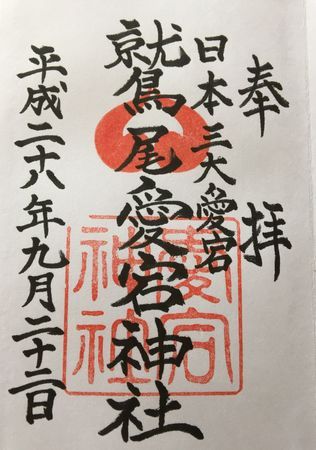 奉拝
日本三大愛宕
鷲尾愛宕神社
愛宕
神社
平成二十八年九月二十二日